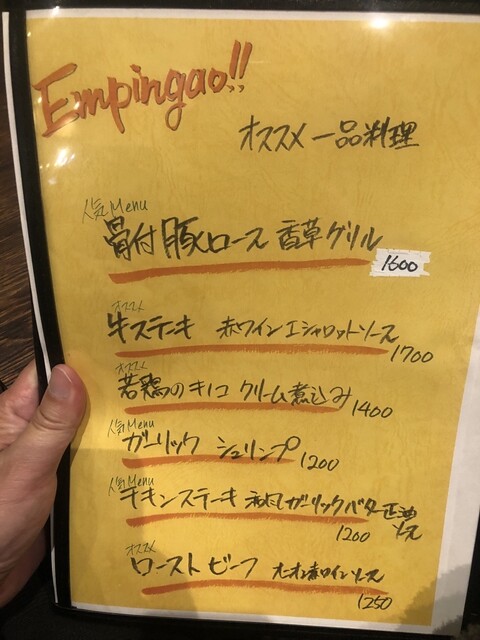 Empingao!!
オススメ一品料理
人気Menu
骨付豚ロース 香草グリル
1600
オススメ
牛ステーキ 赤ワインエシャロットソース
1700
オススメ
若鶏のキノコ クリーム煮込み
1400
人気Menu
ガーリック シュリンプ
1200
人気Menu
チキンステーキ 和風ガーリックバター正油
ソース
1200
オススメ
ローストビーフ オニオン赤ワインソース
1250